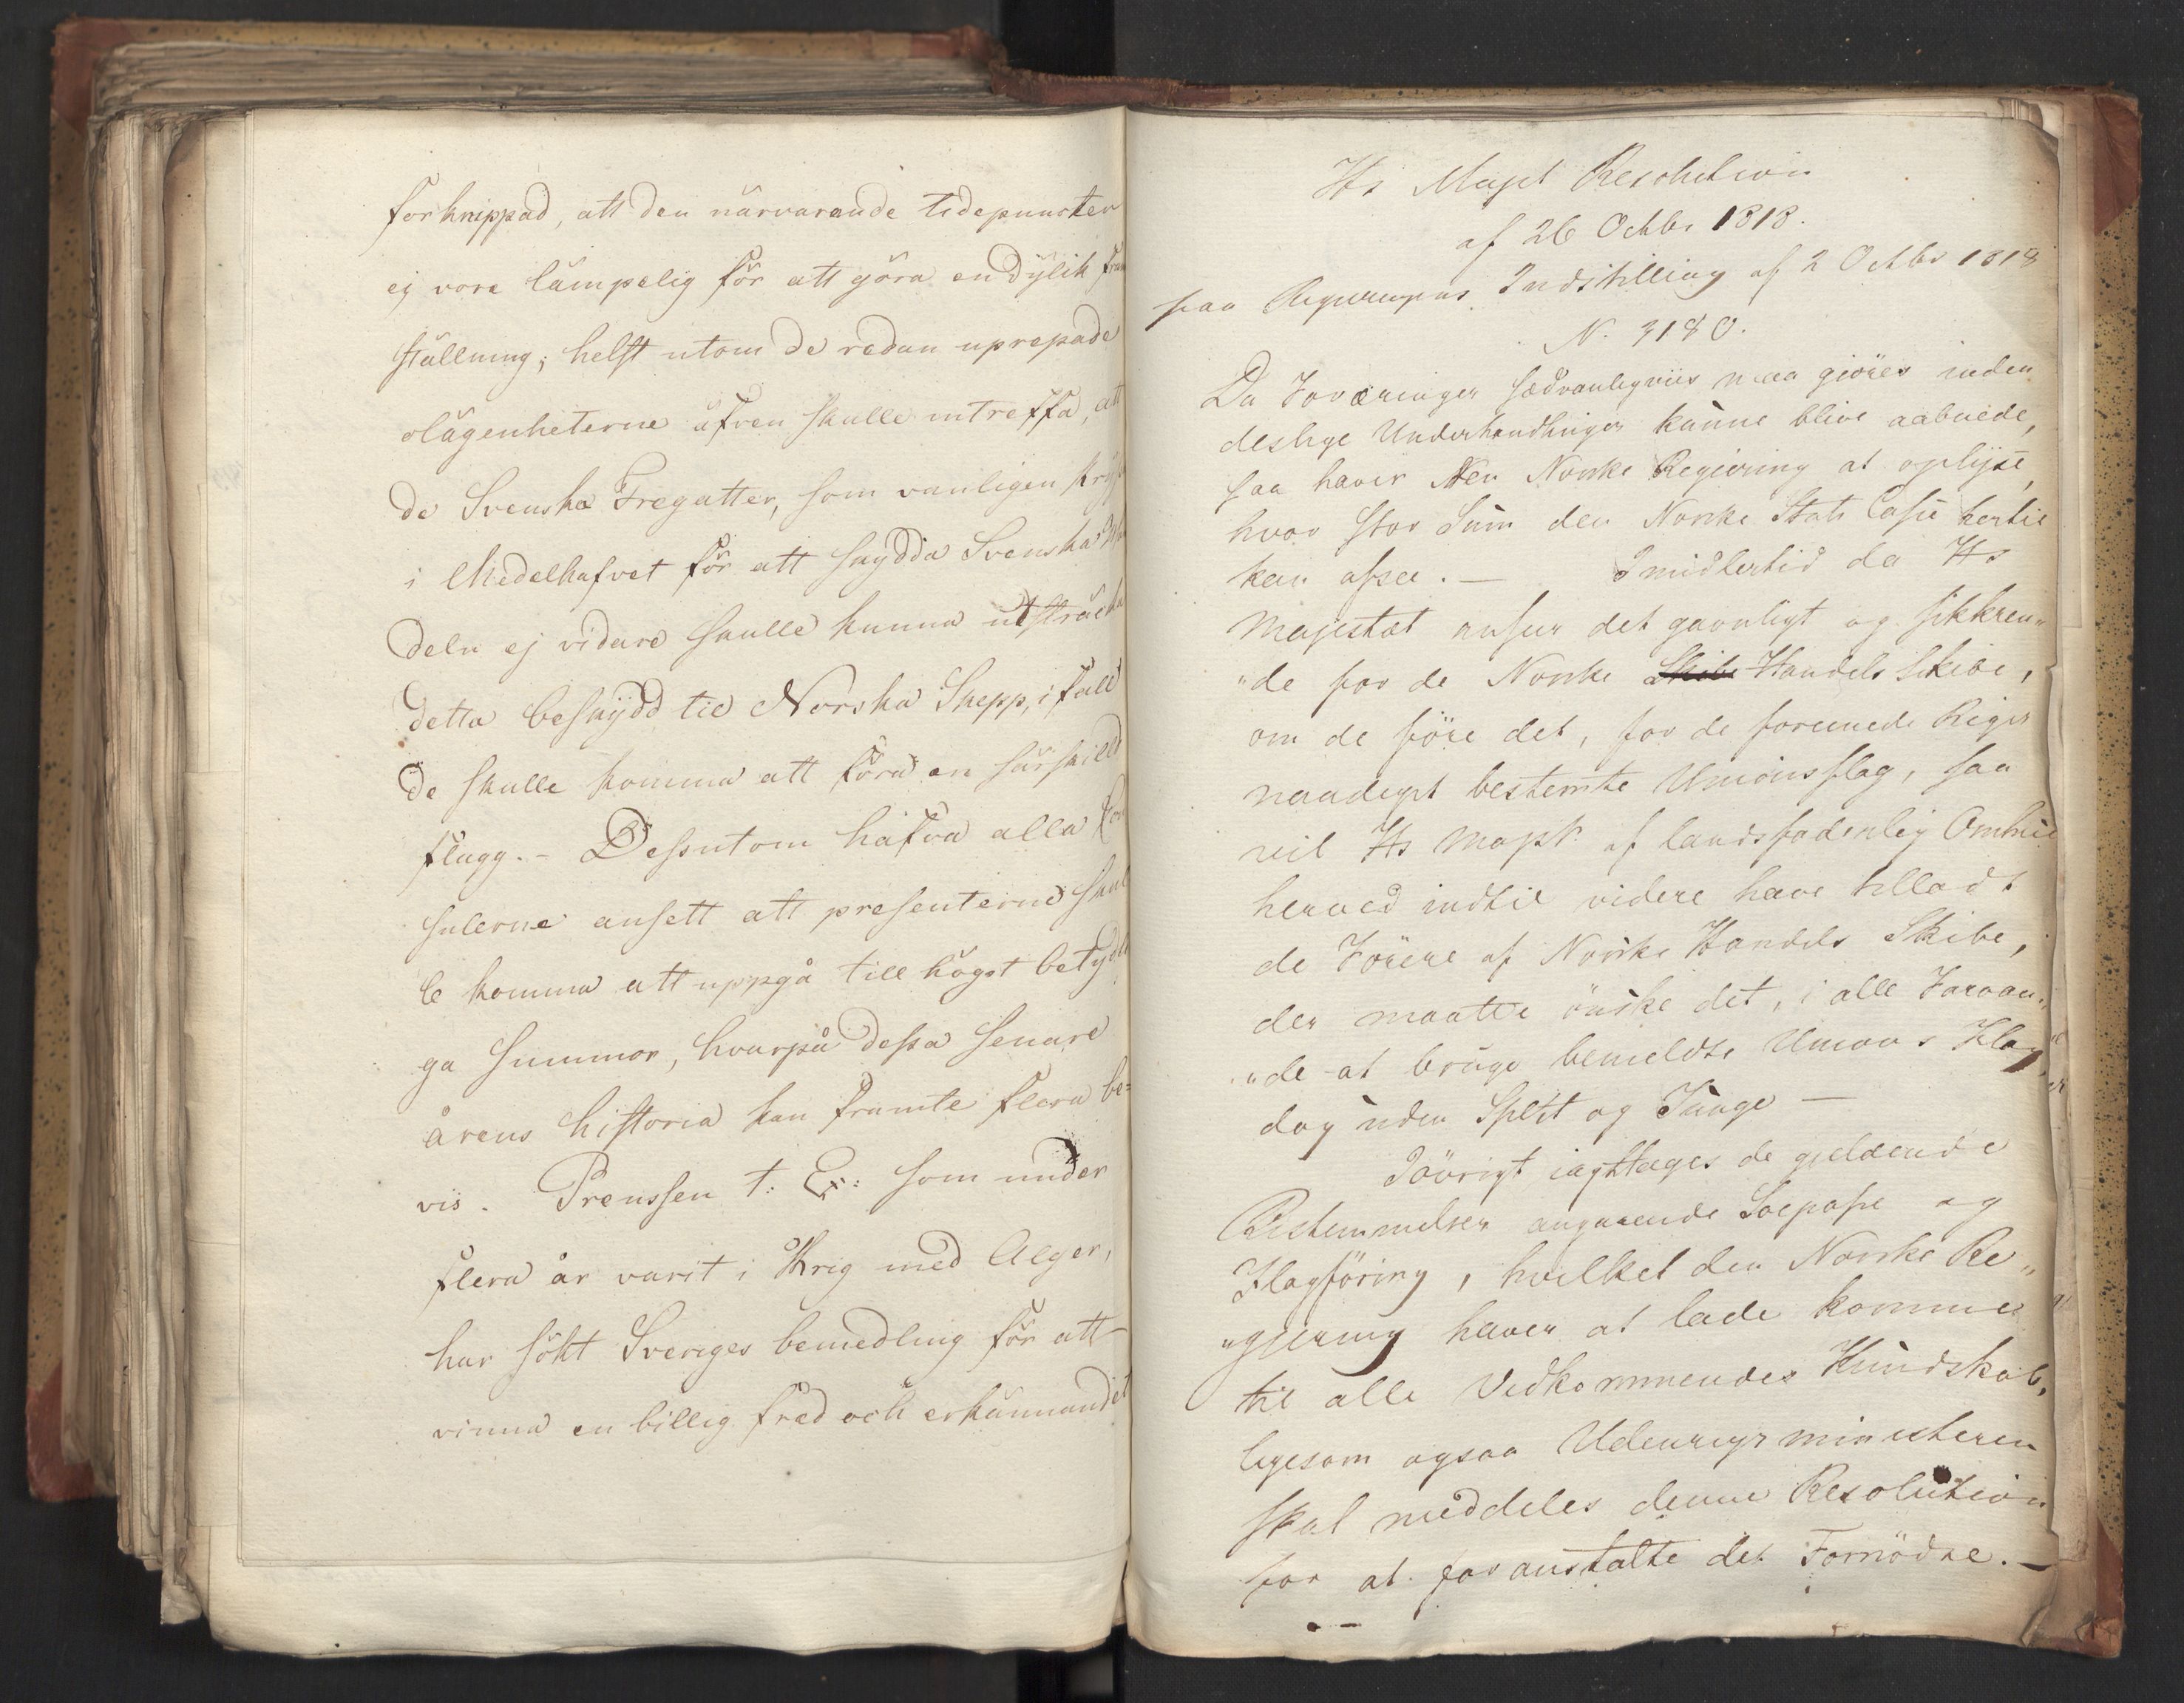 förknippad, att den närvarande tidepuncten
ej vore lämpelig för att göra en dylik fram
ställning; helst utom de redan uprepade
olägenheterne äfven skulle intreffa, att
de Svenska Fregatter, som vanligen kry
i Medelhafvet för att skydda Svenska
deln ej vidare skulle kunna utsträcka
detta beskydd til Norska Skepp, i fall
de skulle komma att föra en särskilld
flagg. - Dessutom hafva alla Con
sulerne ansett att presenterne skul
le komma att uppgå till högst betydli
ga summor, hvarpå dessa senare
årens historia kan framte flera be=
vis. Preussen t: Ex: som under
flera år varit i Krig med Alger,
har sökt Sveriges bemedling för att
vinna en billig fred och erkännandet
Hs Majst Resolution
af 26 Octbr 1818.
paa Regjeringens Indstilling af 2 Octbr 1818
N. 3180.
Da Foræringer sædvanligviis maa giöres inden
deslige Underhandlinger kunne blive aabnede,
saa haver den Norske Regiering at oplyse,
hvor stor Sum den Norske Stats Casse hertil
kan afsee. — Imidlertid da Hs
Majestæt anseer det gavnligt og sikkren„
„de for de Norske Handels Skibe,
om de före det, for de forenede Riger
naadigst bestemte Unionsflag, saa
vil Hs Majst. af landsfaderlig Omhue
herved indtil videre have tilladt
de Förere af Norske Handels Skibe,
der maatte önske det, i alle Farvan„
„de at bruge bemeldte Unions Flag,
dog uden Split og Tunge —
Iövrigt iagttages de gieldende
Bestemmelser angaaende Søepasse og
Flagföring, hvilket den Norske Re„
„gjering haver at lade komme
til alle Vedkommendes Kundskab,
ligesom ogsaa Udenrigsministeren
skal meddeles denne Resolution
for at foranstalte det Fornödne. —